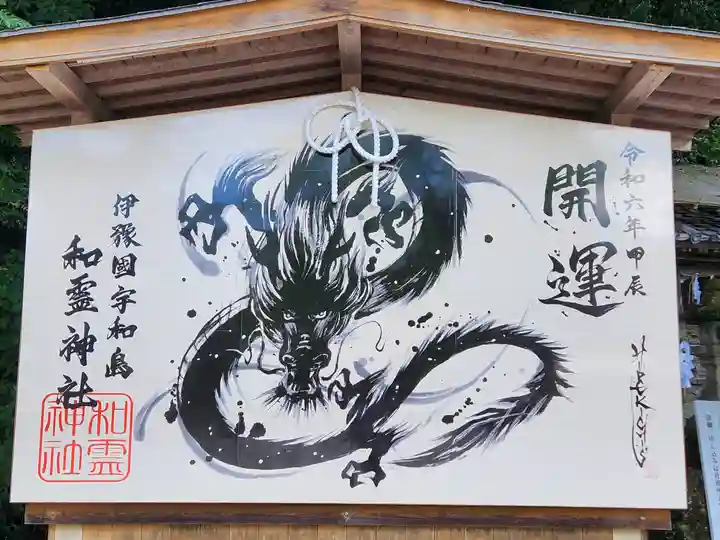 令和六年 甲辰
開運
伊豫國宇和島
和霊神社
和霊
神社